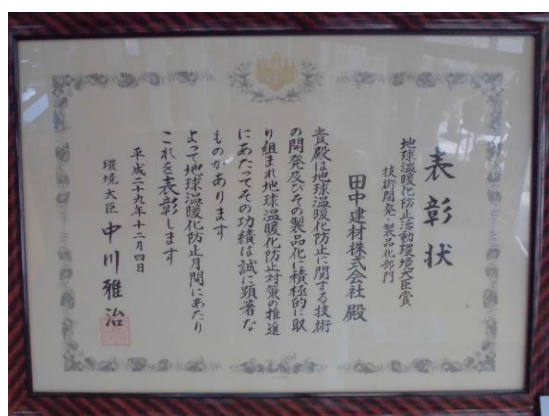 表彰状
地球温暖化防止活動環境大臣賞
技術開発・製品化部門
田中建材株式会社 殿
貴殿は地球温暖化防止に関する技術
の開発及びその製品化に積極的に取
り組まれ地球温暖化防止対策の推進
にあたってその功績は誠に顕著な
ものがあります
よって地球温暖化防止月間にあたり
これを表彰します
平成二十九年十二月四日
環境大臣 中川雅治